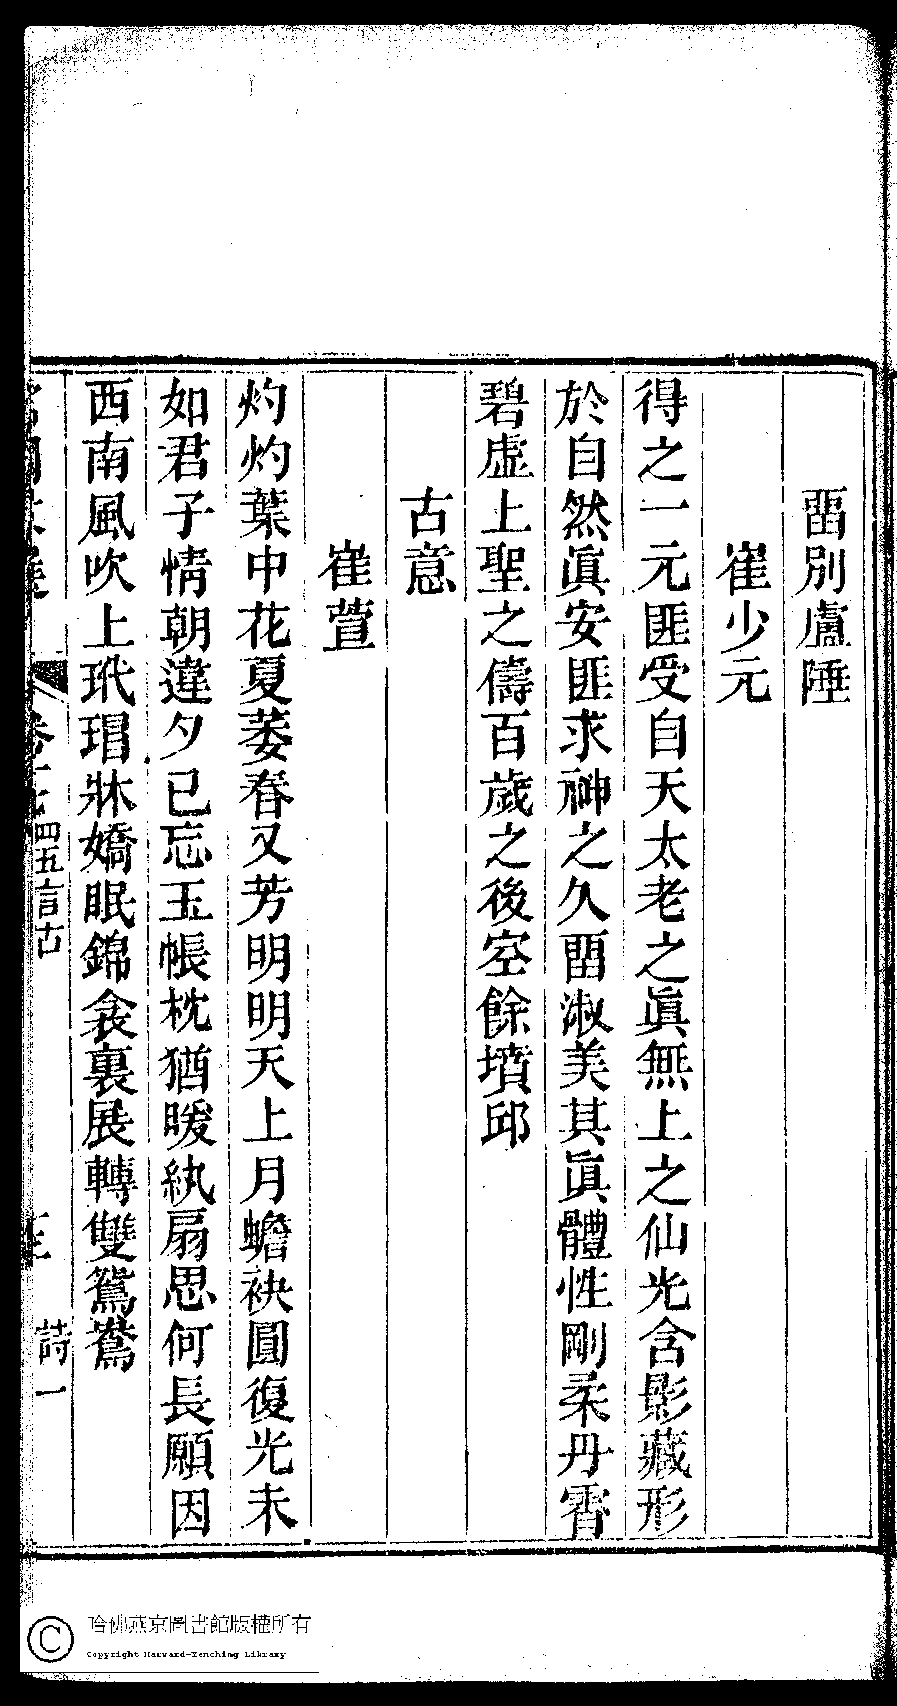 畱別盧陲
崔少元
得之一元匪受自天太老之眞無上之仙光含影藏形
於自然眞安匪求神之久畱淑美其眞體性剛柔丹霄
碧虛上聖之儔百歲之後空餘墳邱
古意
崔萱
灼灼葉中花夏萎春又芳明明天上月蟾缺圓復光未
如君子情朝違夕已忘玉帳枕猶暖紈扇思何長願因
西南風吹上玳瑁牀嬌眠錦衾裏展轉雙鴛鴦
四五言古
詩一
哈佛燕京圖書館版權所有
Copyright Harvard-Yenching Library